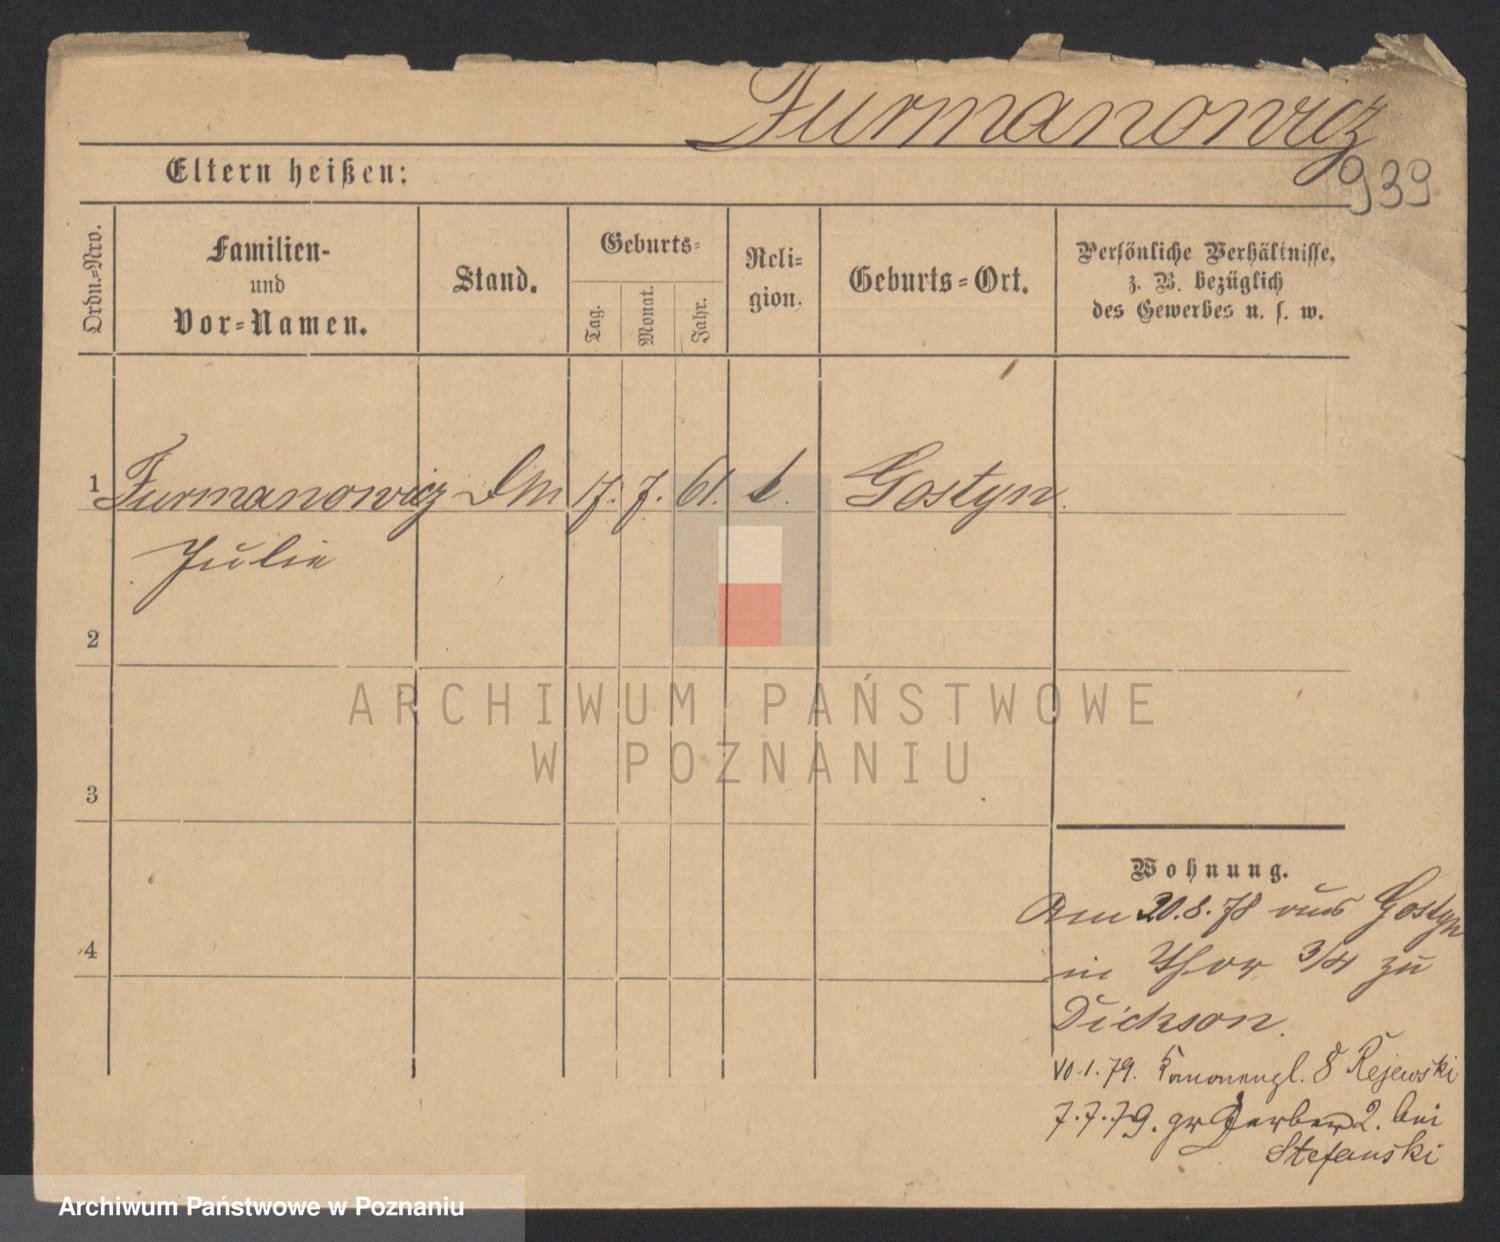 Furmanowicz
939
Eltern heißen:
Ordn.=Nro.
Familien-
und
Vor=Namen.
Stand.
Geburts=
Tag.
Monat.
Jahr.
Reli=
gion.
Geburts=Ort.
Persönliche Verhältnisse,
z. B. bezüglich
des Gewerbes u. s. w.
1 Furmanowicz 17. 7. 61. k. Gostyn.
Julie
2
3
4
ARCHIWUM PAŃSTWOWE
W POZNANIU
Wohnung.
Am 20.8.78 aus Gostyn
in Thor 3/4 zu
Dickson.
10.1.79. 8 Rejewski
7.7.79. gr Gerber 2. bei
Stefanski
Archiwum Państwowe w Poznaniu